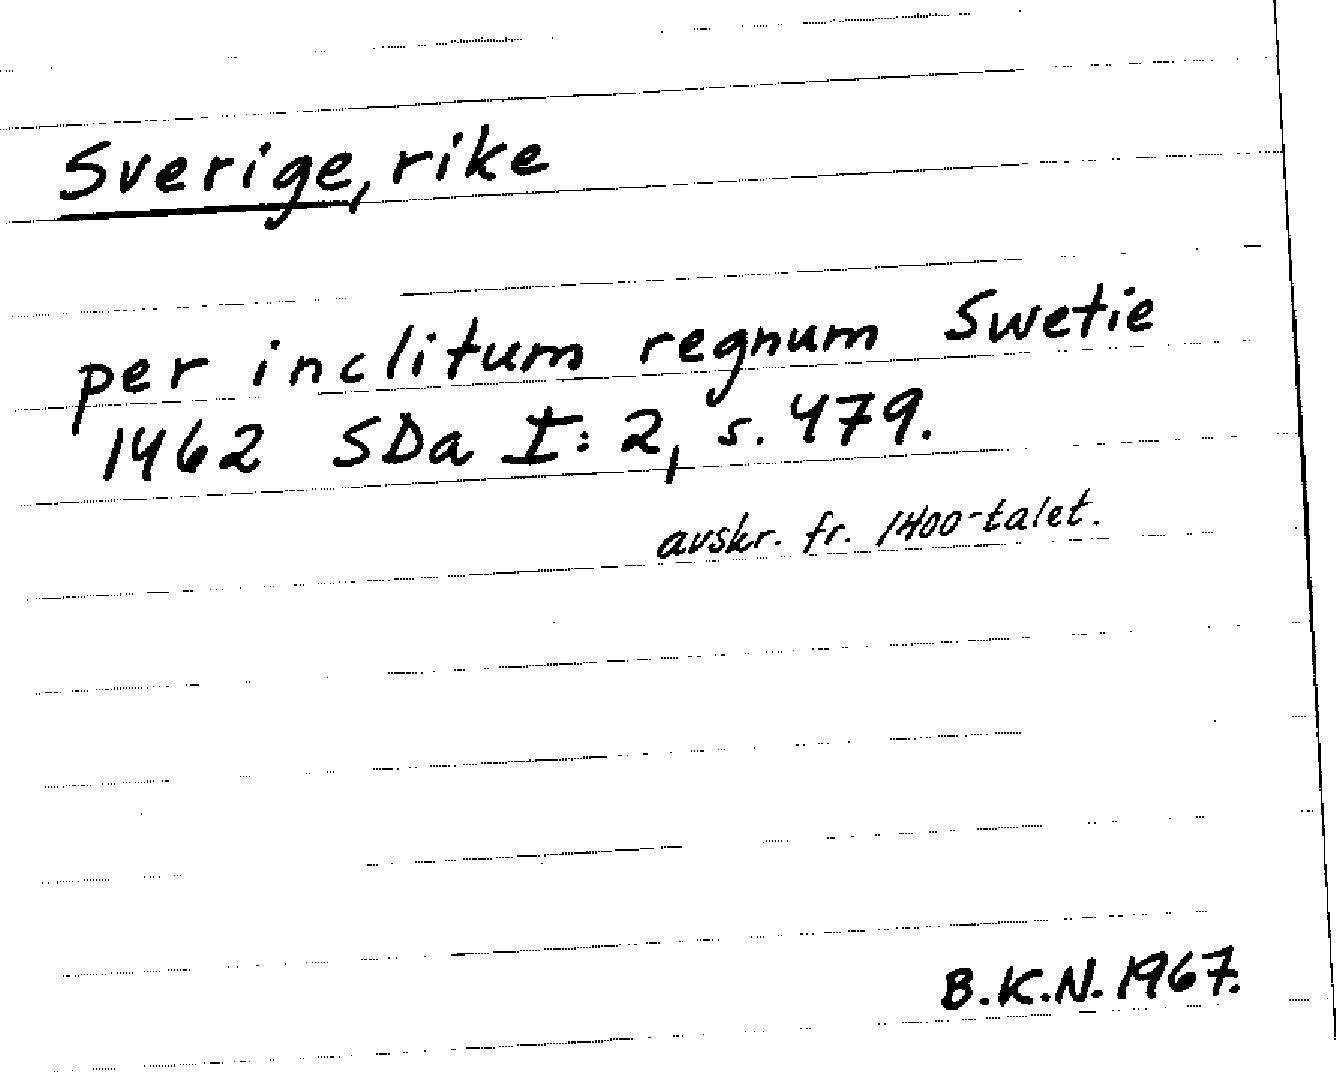 Sverige, rike
per inclitum regnum Swetie
1462 SDa I: 2, s. 479.
avskr. fr. 1400-talet.
B.K.N. 1967.